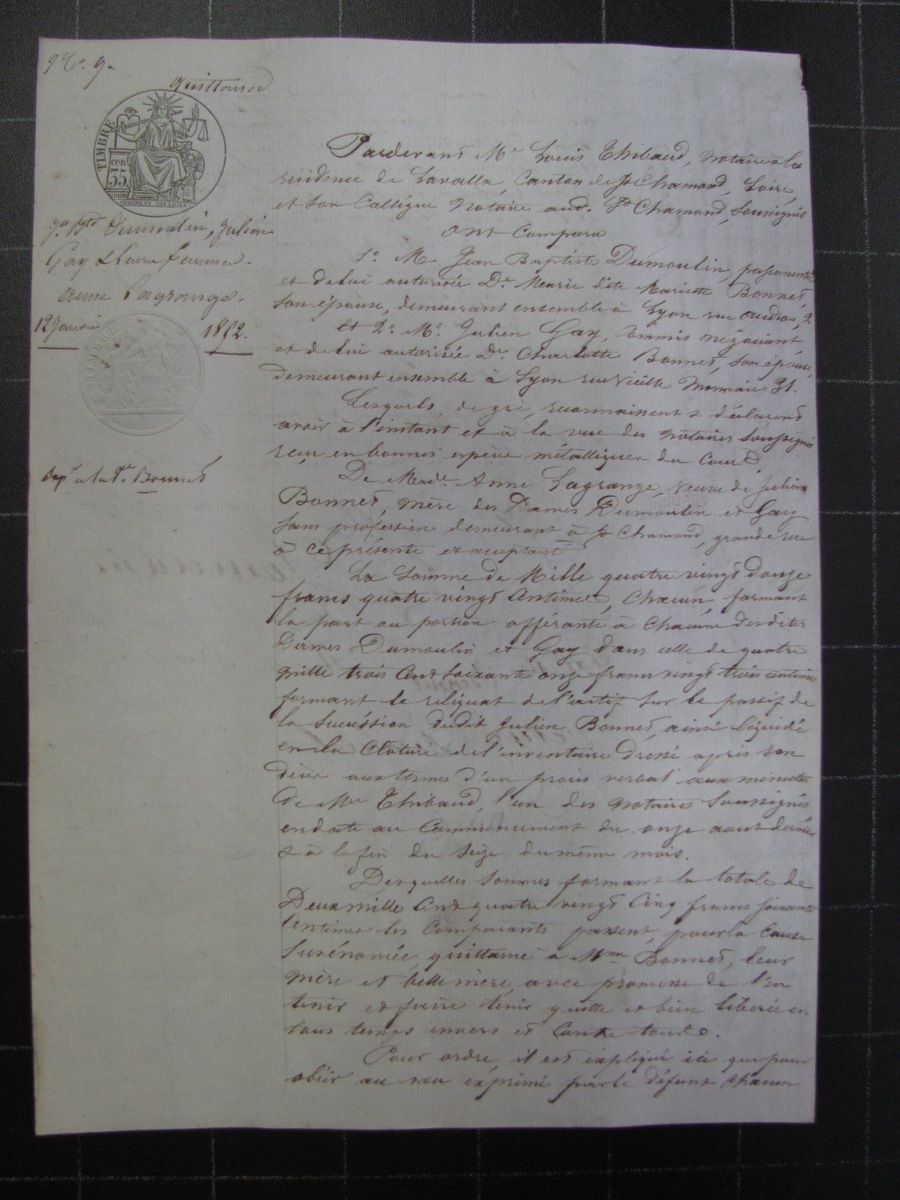 9.
Quittance
TIMBRE
55
Jn Bte Dumoulin, Julien
Gay & leurs femmes
Anne Lagrange.
12 Janvier 1892.
Bonnet
Pardevant Me Louis Thibaud, notaire à la
résidence de Lavalla, Canton de St Chamond, Loire
et son Collègue notaire aud. St Chamond, soussignés
Ont Comparu
1o M. Jean Baptiste Dumoulin,
et de lui autorisée De Marie dite Mariette Bonnet
son épouse, demeurant ensemble à Lyon rue
Et 2o Mr Julien Gay, Commis négociant
et de lui autorisée De Charlotte Bonnet, son épouse,
demeurant ensemble à Lyon rue Vieille Monnaie 31.
Lesquels, de gré, reconnaissent & déclarent
avoir à l'instant et à la vue des notaires soussignés
reçu en bonnes espèces métalliques du Cours,
De Made Anne Lagrange, veuve de Julien
Bonnet, mère des Dames Dumoulin et Gay
sans profession demeurant à St Chamond, grande rue
à ce présente et acceptant
La Somme de Mille quatre vingt douze
francs quatre vingt Centimes, Chacun, formant
la part ou portion afférante à Chacune desdites
Dames Dumoulin et Gay dans celle de quatre
mille trois Cent soixante onze francs vingt trois centimes
formant le réliquat de l'actif sur le passif de
la succession dudit Julien Bonnet, ainsi liquidé
en la Cloture de l'inventaire dressé après son
décès aux termes d'un procès verbal aux minutes
de Me Thibaud, l'un des notaires soussignés
en date au Commencement du onze aout dernier
& à la fin du seize du même mois.
Desquelles sommes formant la totale de
Deux mille Cent quatre vingt Cinq francs soixante
Centimes les Comparants passent, pour la Cause
susénoncée, quittance à Mme Bonnet, leur
mère et belle mère, avec promesse de l'en
tenir et faire tenir quitte et bien libérée en
tous temps envers et Contre tous.
Pour ordre, il est expliqué ici que pour
obéir au vœu exprimé par le défunt Chacun